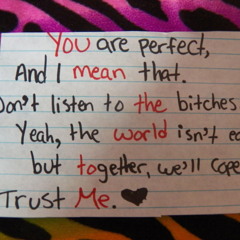 You are perfect,
And I mean that.
Don't listen to the bitches
Yeah, the world isn't ea
but together, we'll cope
Trust Me.